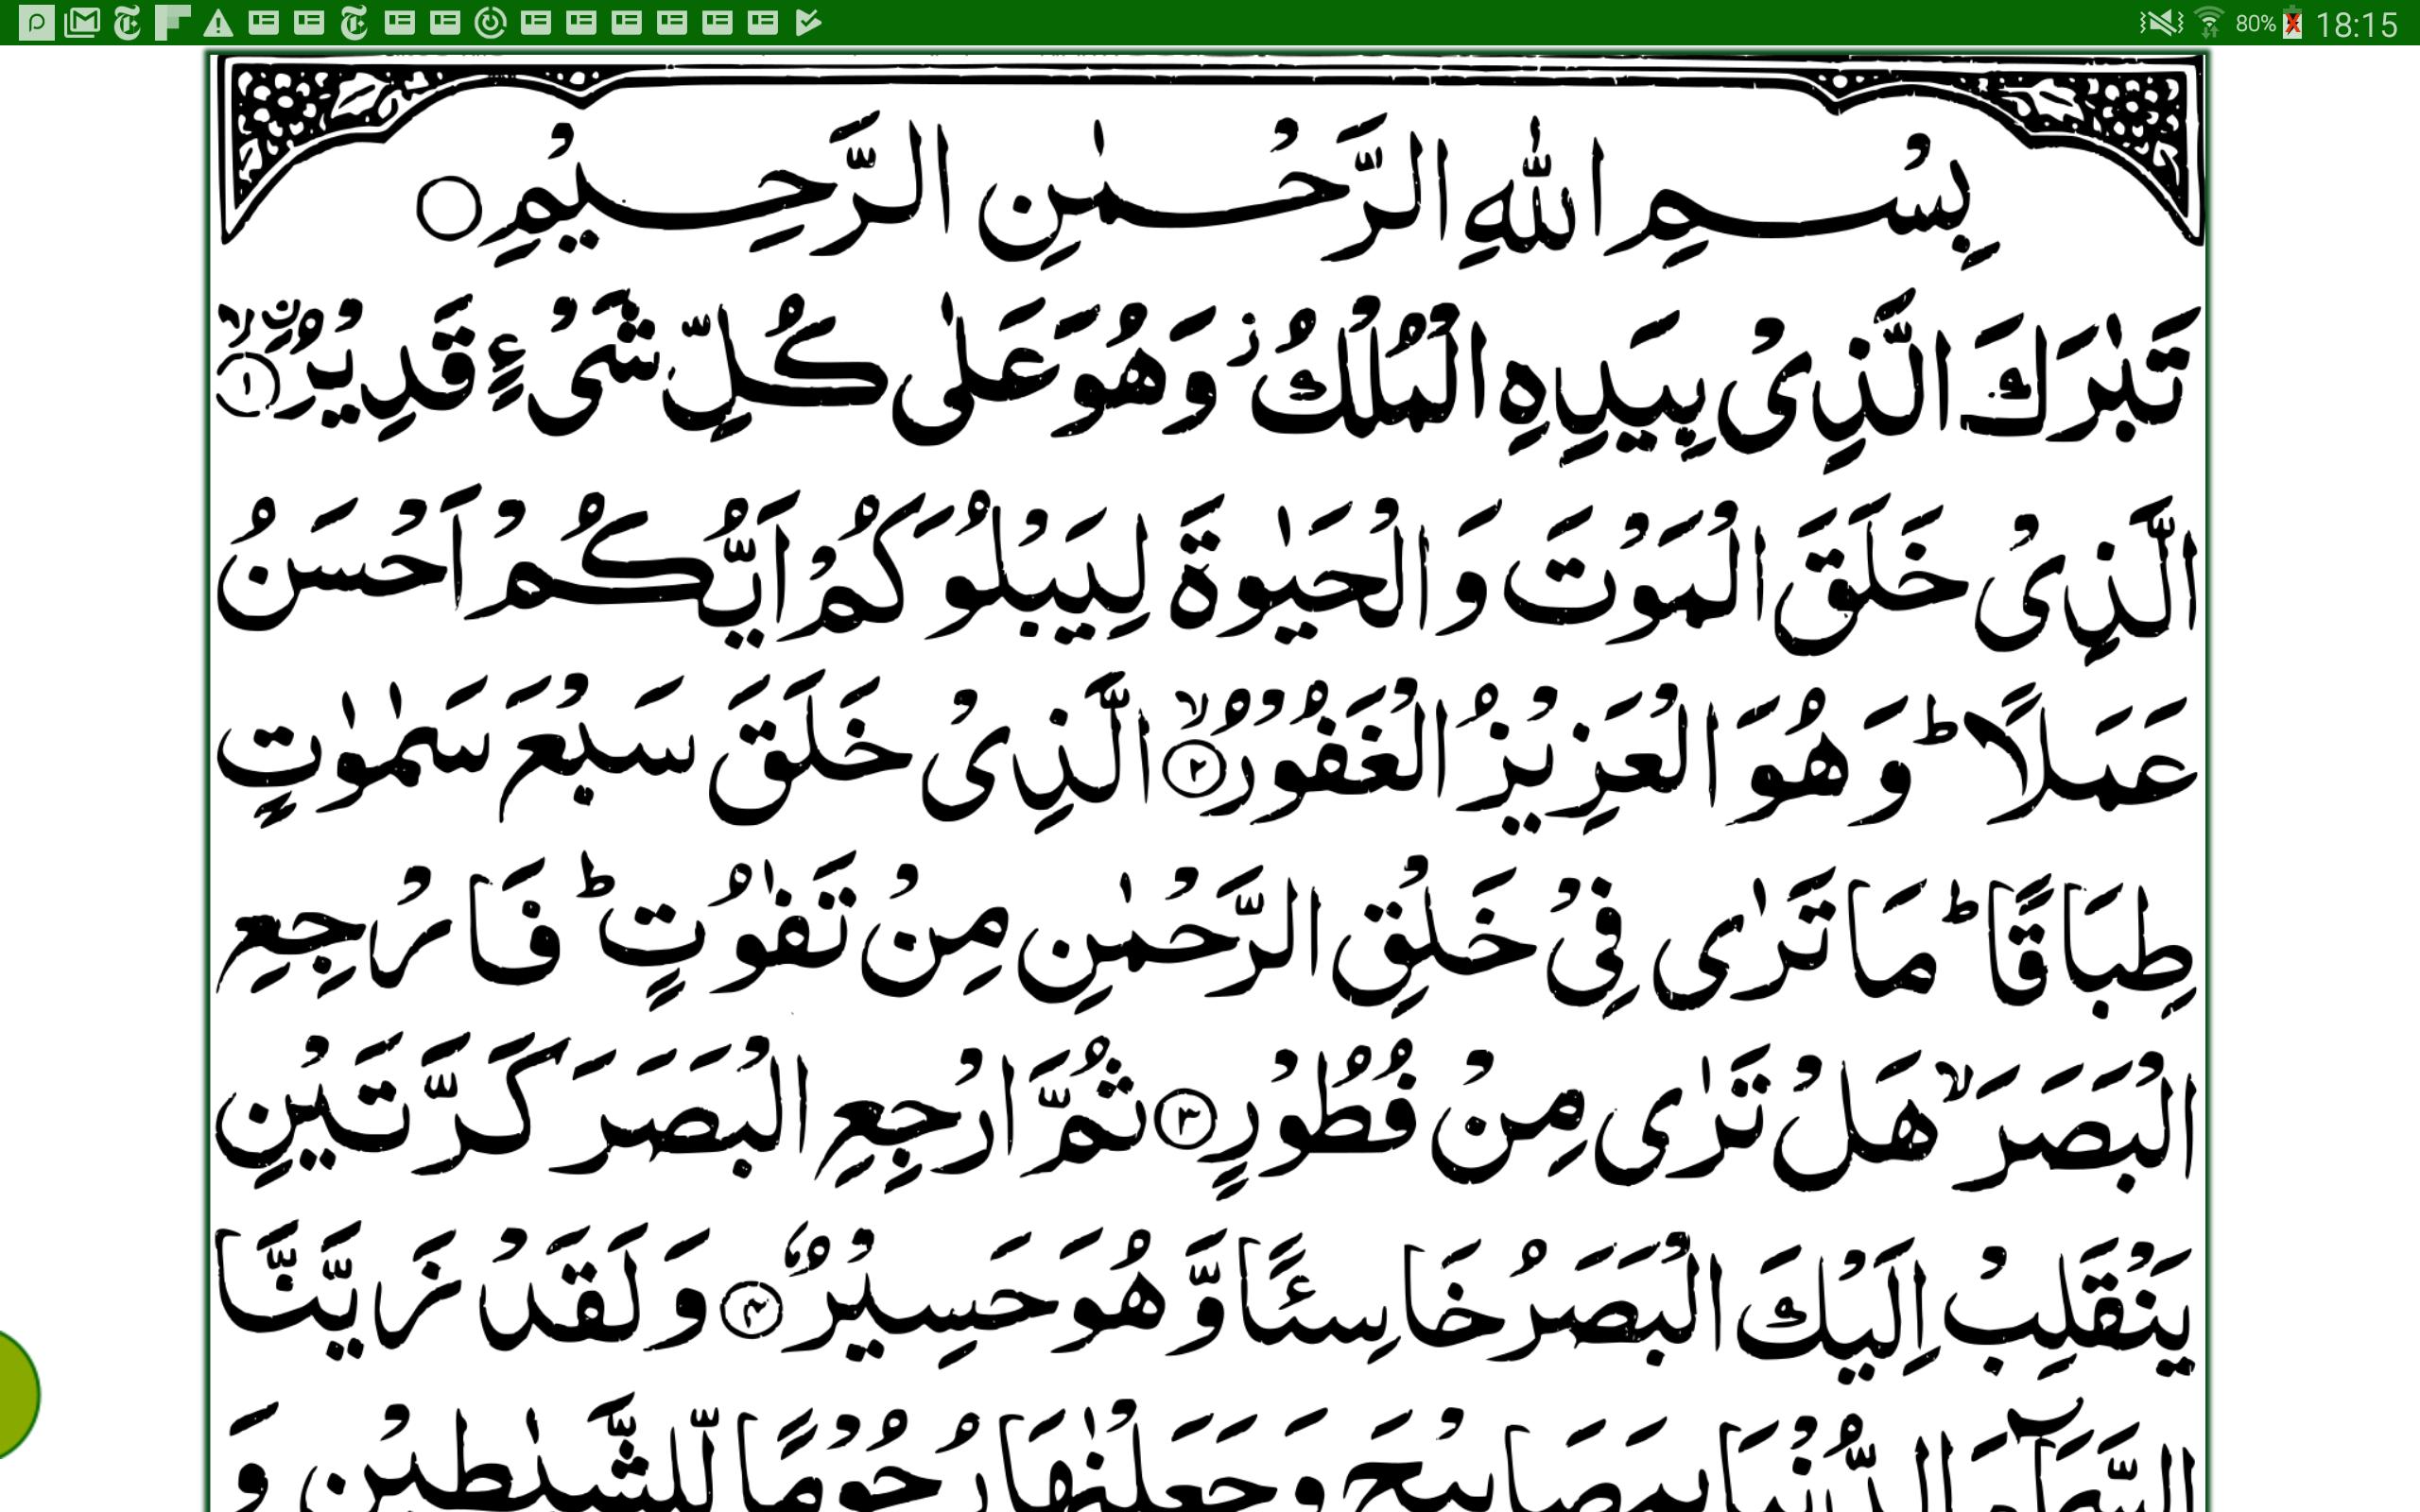 80% 18:15
بِسْمِ اللهِ الرَّحْمٰنِ الرَّحِيْمِ ○
تَبٰرَكَ الَّذِیْ بِیَدِهِ الْمُلْكُ ؗ وَ هُوَ عَلٰی كُلِّ شَیْءٍ قَدِیْرُ ۙ ۟ۙ ﴿۱﴾
الَّذِیْ خَلَقَ الْمَوْتَ وَ الْحَیٰوةَ لِیَبْلُوَكُمْ اَیُّكُمْ اَحْسَنُ
عَمَلًا ؕ وَ هُوَ الْعَزِیْزُ الْغَفُوْرُ ۙ ﴿۲﴾ الَّذِیْ خَلَقَ سَبْعَ سَمٰوٰتٍ
طِبَاقًا ؕ مَا تَرٰی فِیْ خَلْقِ الرَّحْمٰنِ مِنْ تَفٰوُتٍ ؕ فَارْجِعِ
الْبَصَرَ ۙ هَلْ تَرٰی مِنْ فُطُوْرٍ ﴿۳﴾ ثُمَّ ارْجِعِ الْبَصَرَ كَرَّتَیْنِ
یَنْقَلِبْ اِلَیْكَ الْبَصَرُ خَاسِئًا وَّ هُوَ حَسِیْرٌ ﴿۴﴾ وَ لَقَدْ زَیَّنَّا
السَّمَآءَ الدُّنْیَا بِمَصَابِیْحَ وَ جَعَلْنٰهَا رُجُوْمًا لِّلشَّیٰطِیْنِ وَ